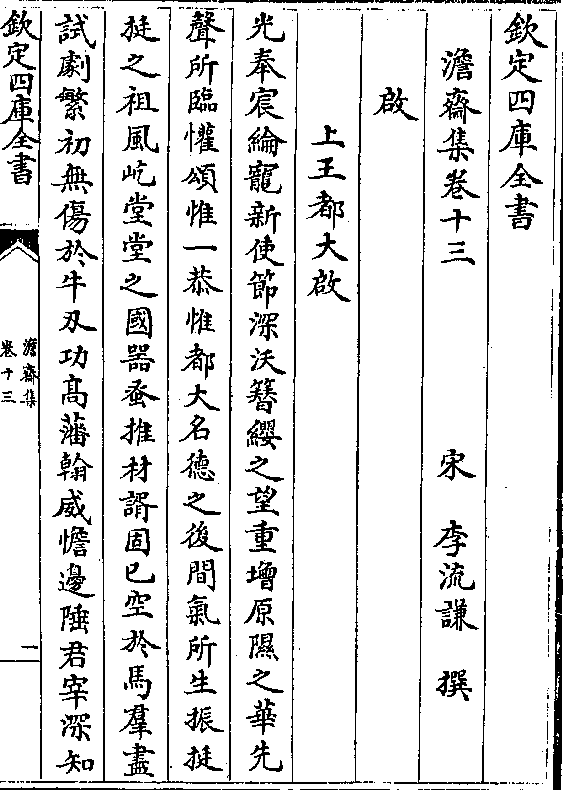 欽定四庫全書
澹齋集卷十三
宋 李流謙 撰
啟
上王都大啟
光奉宸綸寵新使節深沃簪纓之望重增原隰之華先
聲所臨懽頌惟一恭惟都大名德之後間氣所生振挺
挺之祖風屹堂堂之國器蚤推材諝固已空於馬羣盡
試劇繁初無傷於牛刃功髙藩翰威憺邊陲君宰深知
欽定四庫全書
澹齋集
卷十三
一